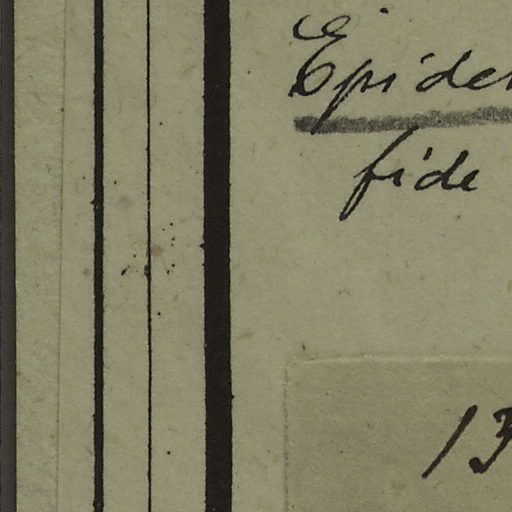 Epiden
fide
13